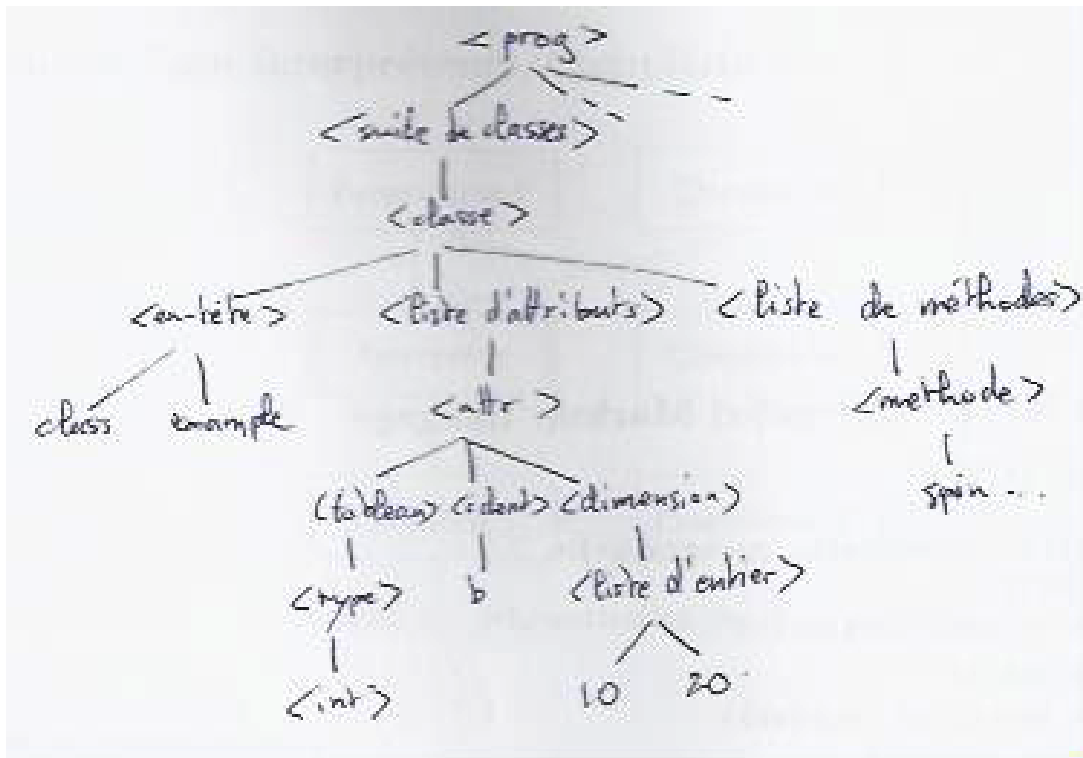 <prog>
<suite de classes>
<classe>
<en-tête> <liste d'attributs> <liste de méthodes>
class example <attr> <méthode>
<tableau> <ident> <dimension> spin ...
<type> b <liste d'entier>
<int> 10 20